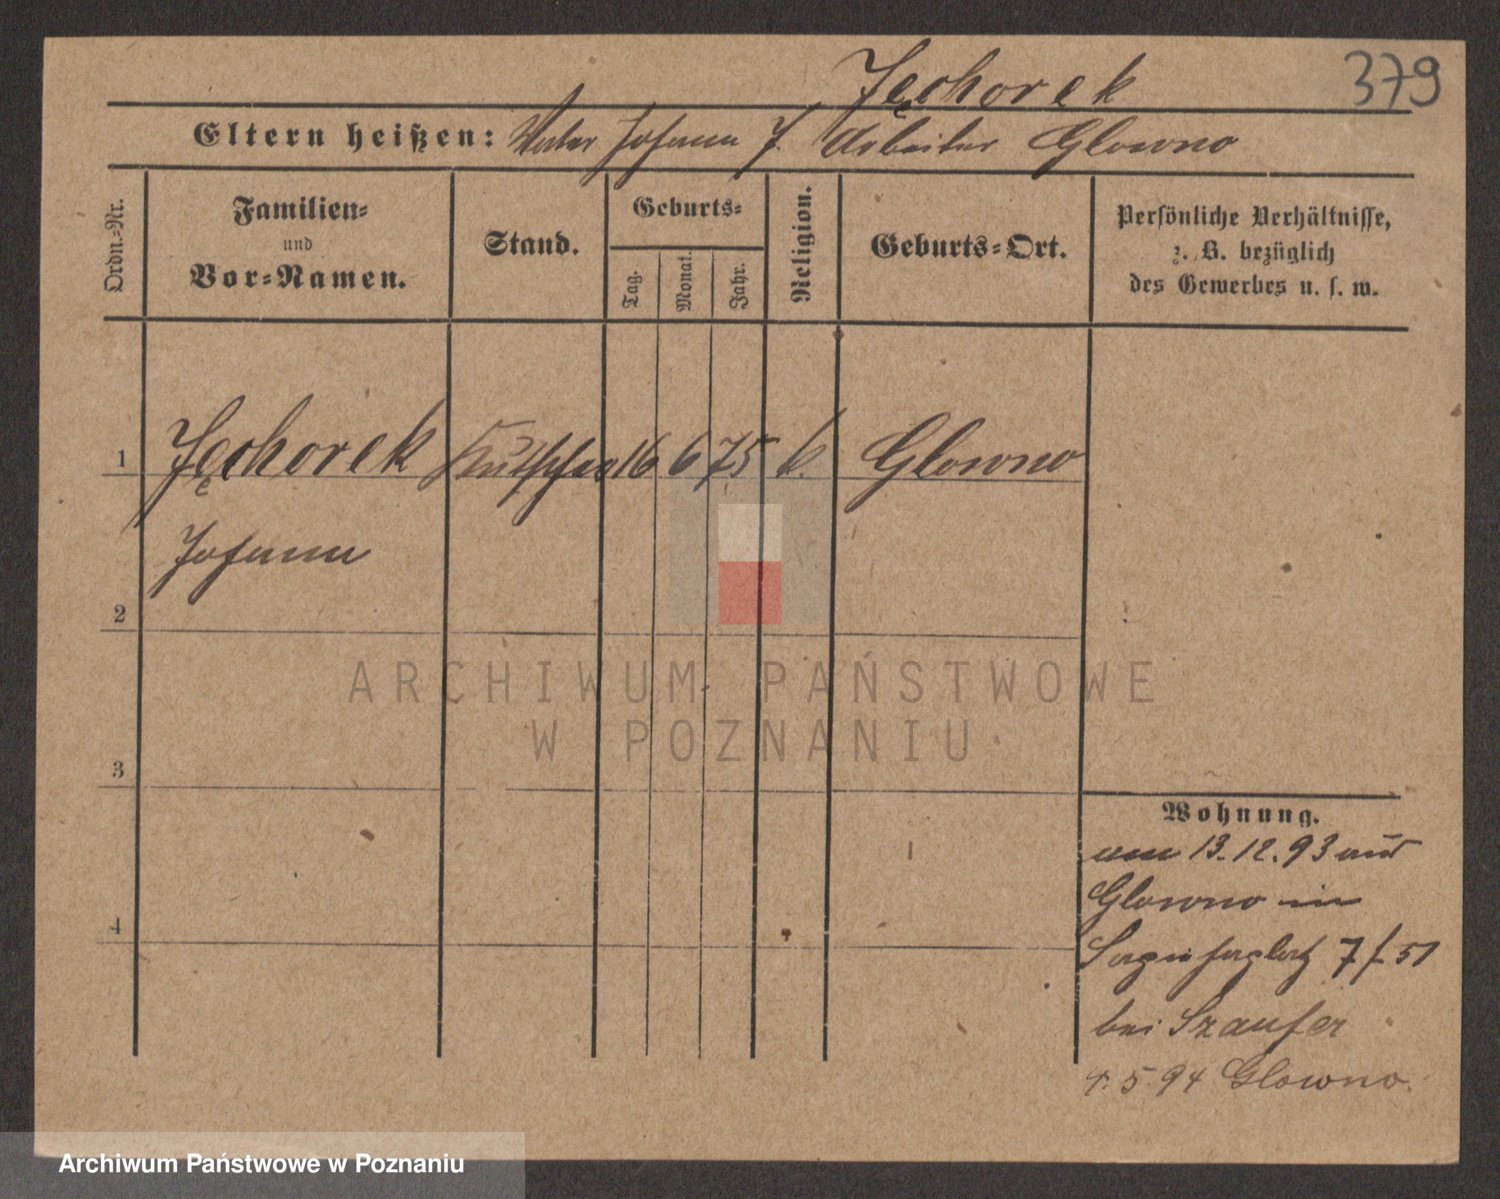 Jęchorek 379
Eltern heißen: Vater Johann J. Arbeiter Glowno
Ordn.-Nr.
Familien-
und
Vor-Namen.
Stand.
Geburts-
Tag.
Monat.
Jahr.
Religion.
Geburts-Ort.
Persönliche Verhältnisse,
z. B. bezüglich
des Gewerbes u. s. w.
1 Jęchorek Kutscher 16 6 75 k. Glowno
Johann
2
3
4
Wohnung.
am 13.12.93 aus
Glowno in
7/51
bei
5 94 Glowno.
ARCHIWUM PAŃSTWOWE
W POZNANIU
Archiwum Państwowe w Poznaniu